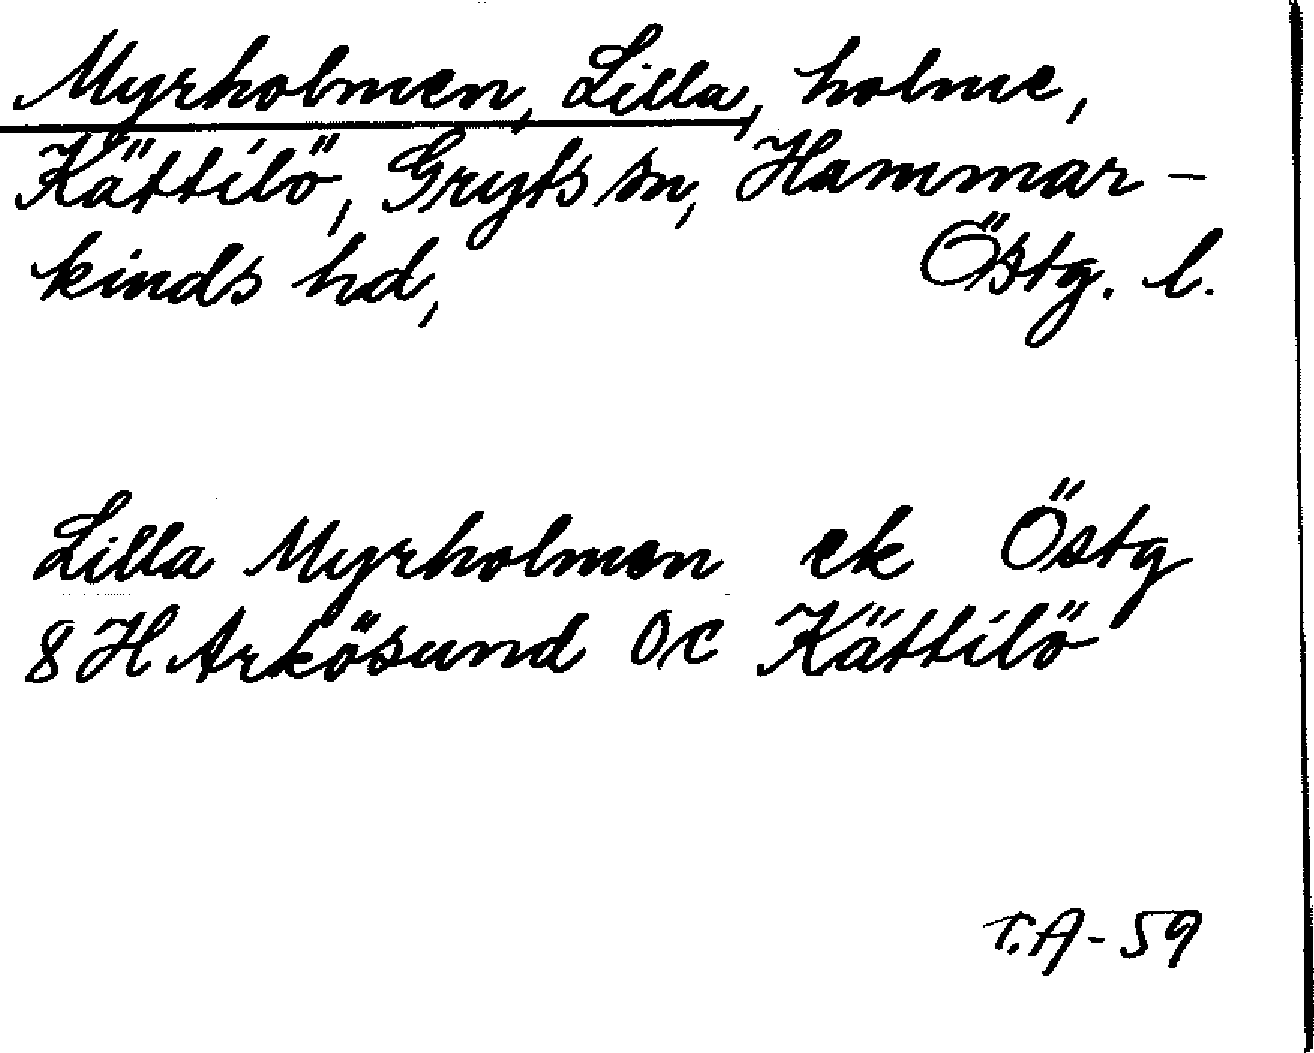 Myrholmen, Lilla, holme,
Kättilö, Gryts sn, Hammar-
kinds hd, Östg. l.
Lilla Myrholmen ek Östg
8 H Arkösund 0c Kättilö
T.A-59